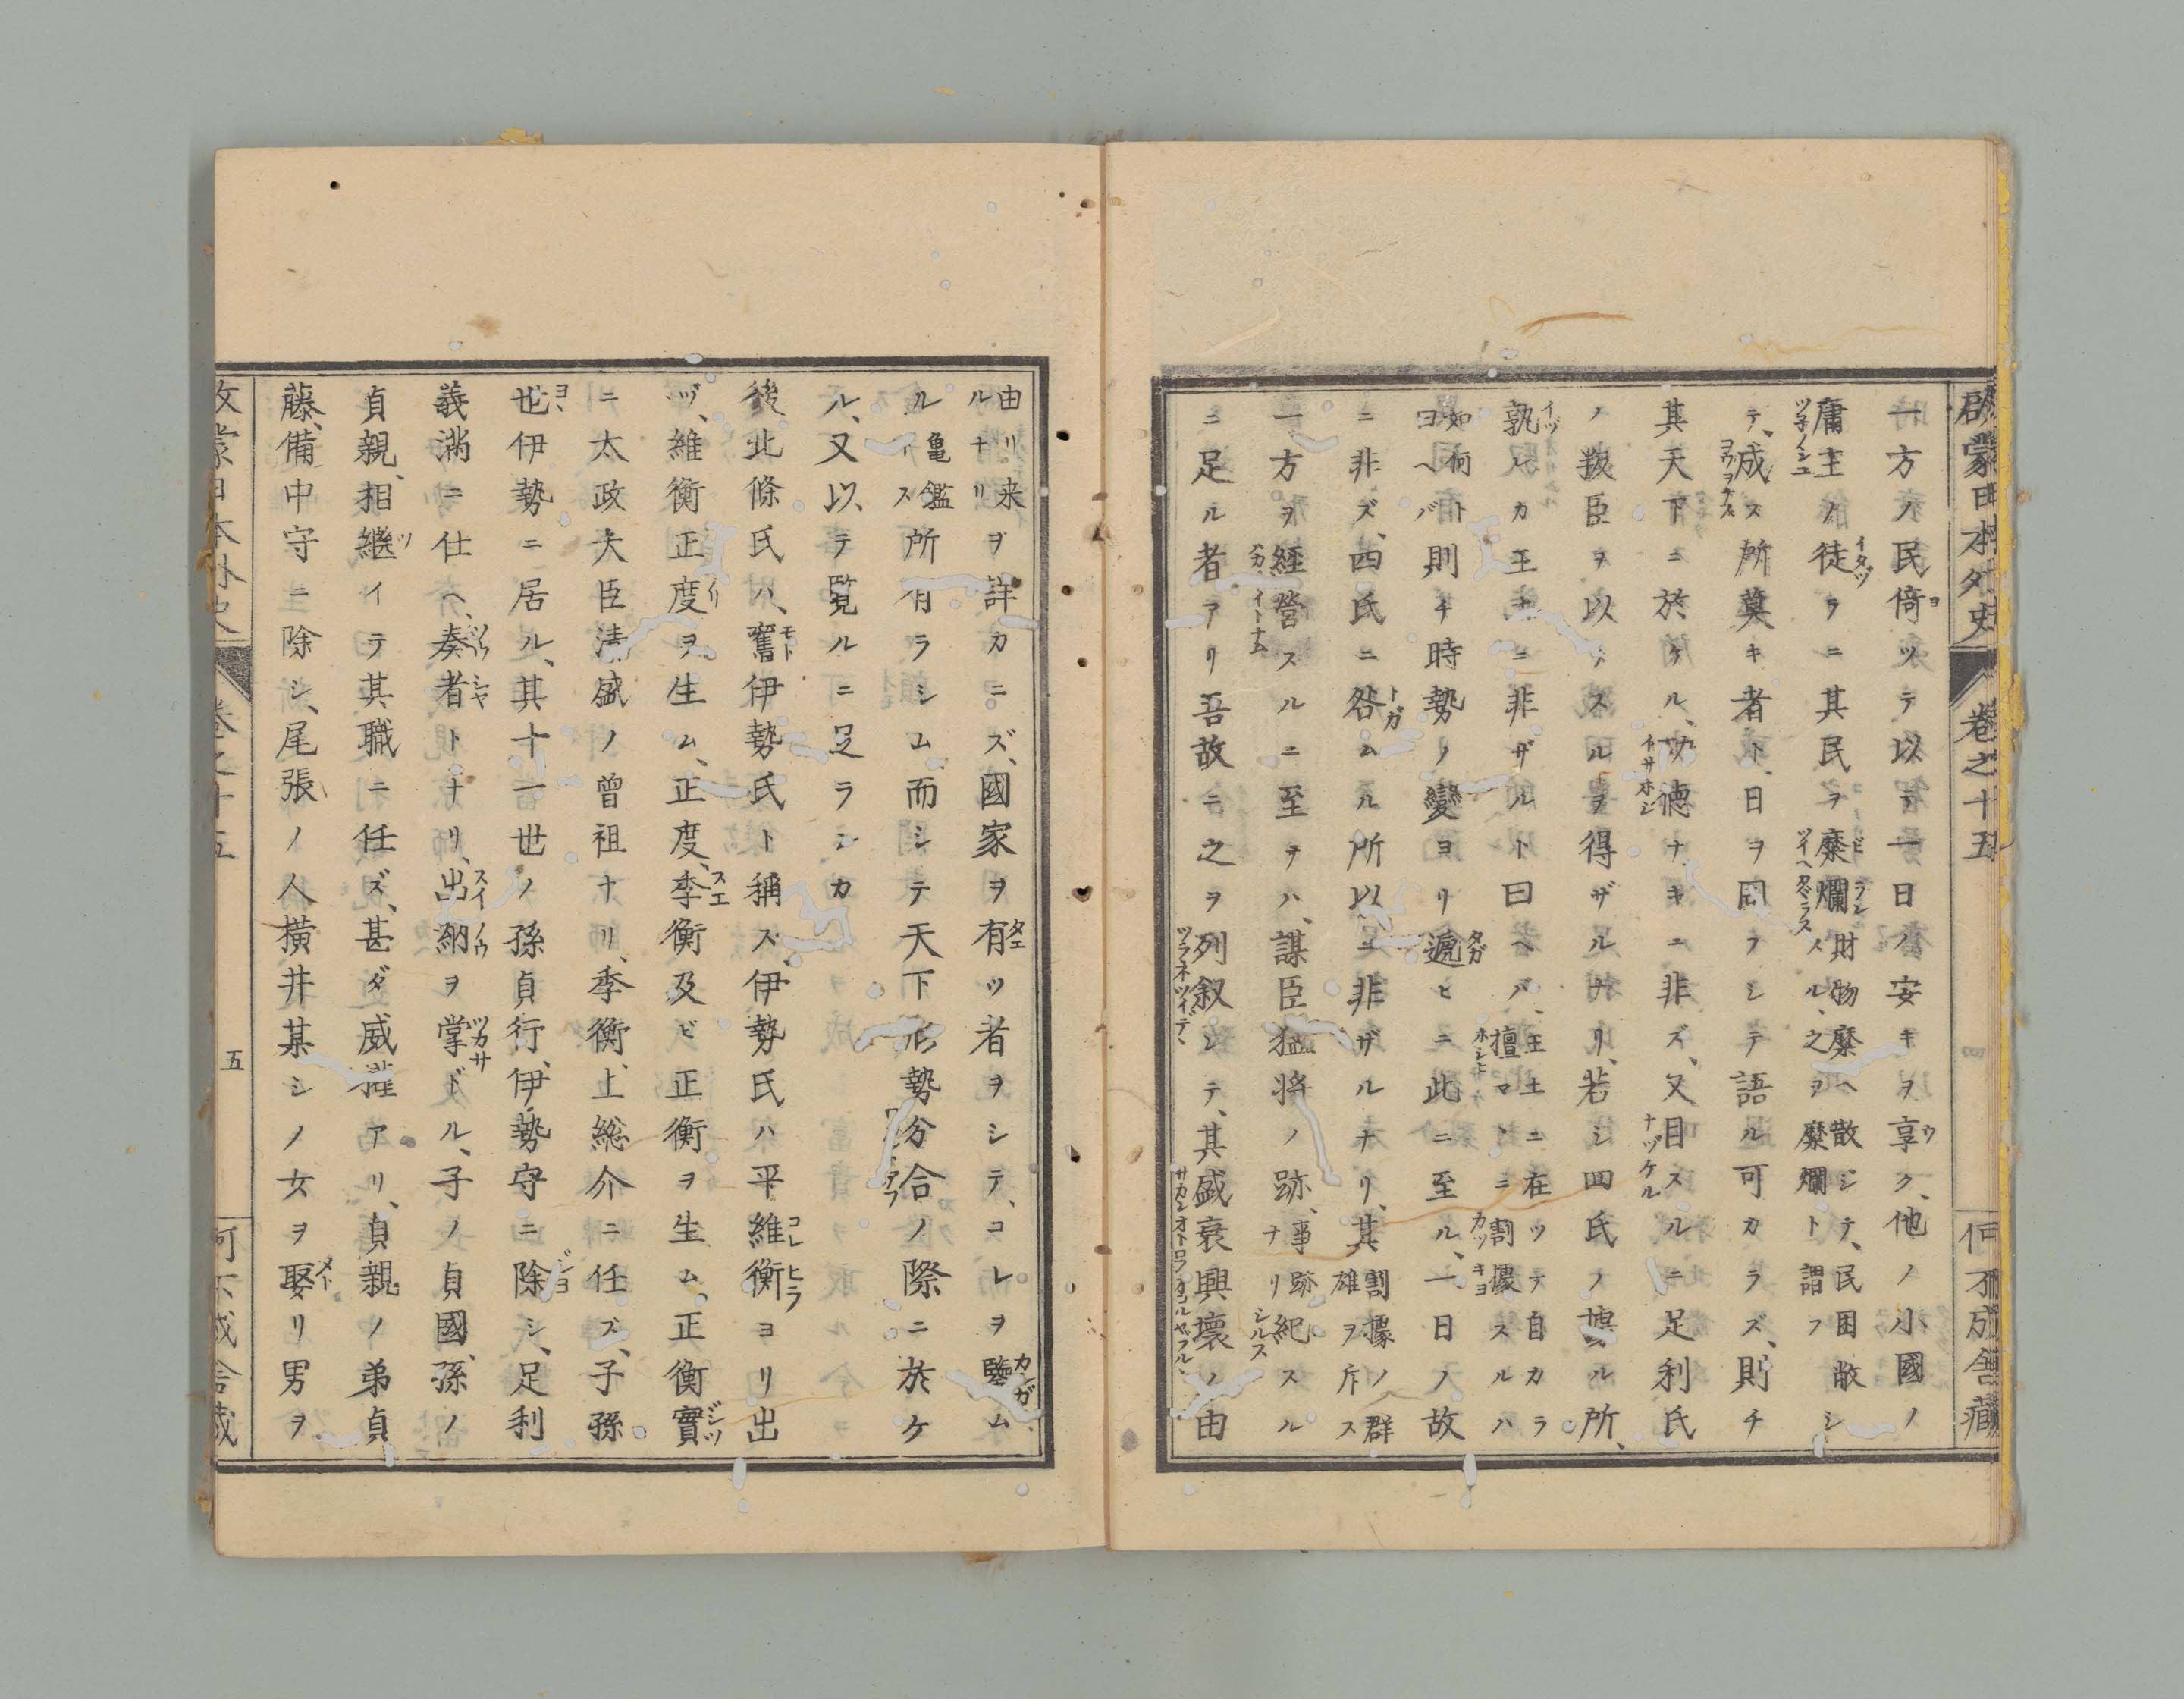 啓蒙日本外史 巻之十五 何不成舎蔵
一方ノ民倚ツテ以テ一日ノ安キヲ享ク、他ノ小國ノ
庸主ノ徒ラニ其民ヲ糜爛シ財物糜ヘ散ジテ、民困敝シ
ツイヘタヾラス メル、之ヲ糜爛ト謂フ
テ、成ス所莫キ者ト、日ヲ同フシテ語ル可カラズ、則チ
其天下ニ於ケル、功德ナキニ非ズ、又目スルニ足利氏
ノ叛臣ヲ以テスルヲ得ザルナリ、若シ四氏ノ據ル所、
孰レカ王土ニ非ザルト曰ヘバ、王土ニ在ツテ自カラ
擅マヽニ割據スルハ
如何トヨヘバ則チ時勢ノ變ヨリ遞ヒニ此ニ至ル、一日ノ故
ニ非ズ、四氏ニ咎ムル所以ニ非ザルナリ、其割據ノ群雄ヲ斥ス
一方ヲ經營スルニ至テハ、謀臣猛將ノ跡、事跡ナリ紀スル
ニ足ル者アリ吾故ニ之ヲ列叙シテ、其盛衰興壞ノ由
由リ来ルナリヲ詳カニズ、國家ヲ有ツ者ヲシテ、コレヲ鑒ム
ル亀鑑ス所有ラシム、而シテ天下形勢分合ノ際ニ於ケ
ル、又以テ覧ルニ足ラシカ
後北條氏ハ、舊伊勢氏ト稱ス、伊勢氏ハ平維衡ヨリ出
ヅ、維衡正度ヲ生ム、正度、季衡及ビ正衡ヲ生ム、正衡實
ニ太政大臣清盛ノ曾祖ナリ、季衡、上総介ニ任ズ、子孫
世伊勢ニ居ル、其十一世ノ孫貞行、伊勢守ニ除シ、足利
義滿ニ仕ヘ、奏者トナリ、出納ヲ掌ドル、子ノ貞國、孫ノ
貞親、相継イテ其職ニ任ズ、甚ダ威權アリ、貞親ノ弟貞
藤、備中守ニ除シ、尾張ノ人横井某シノ女ヲ娶リ男ヲ
五